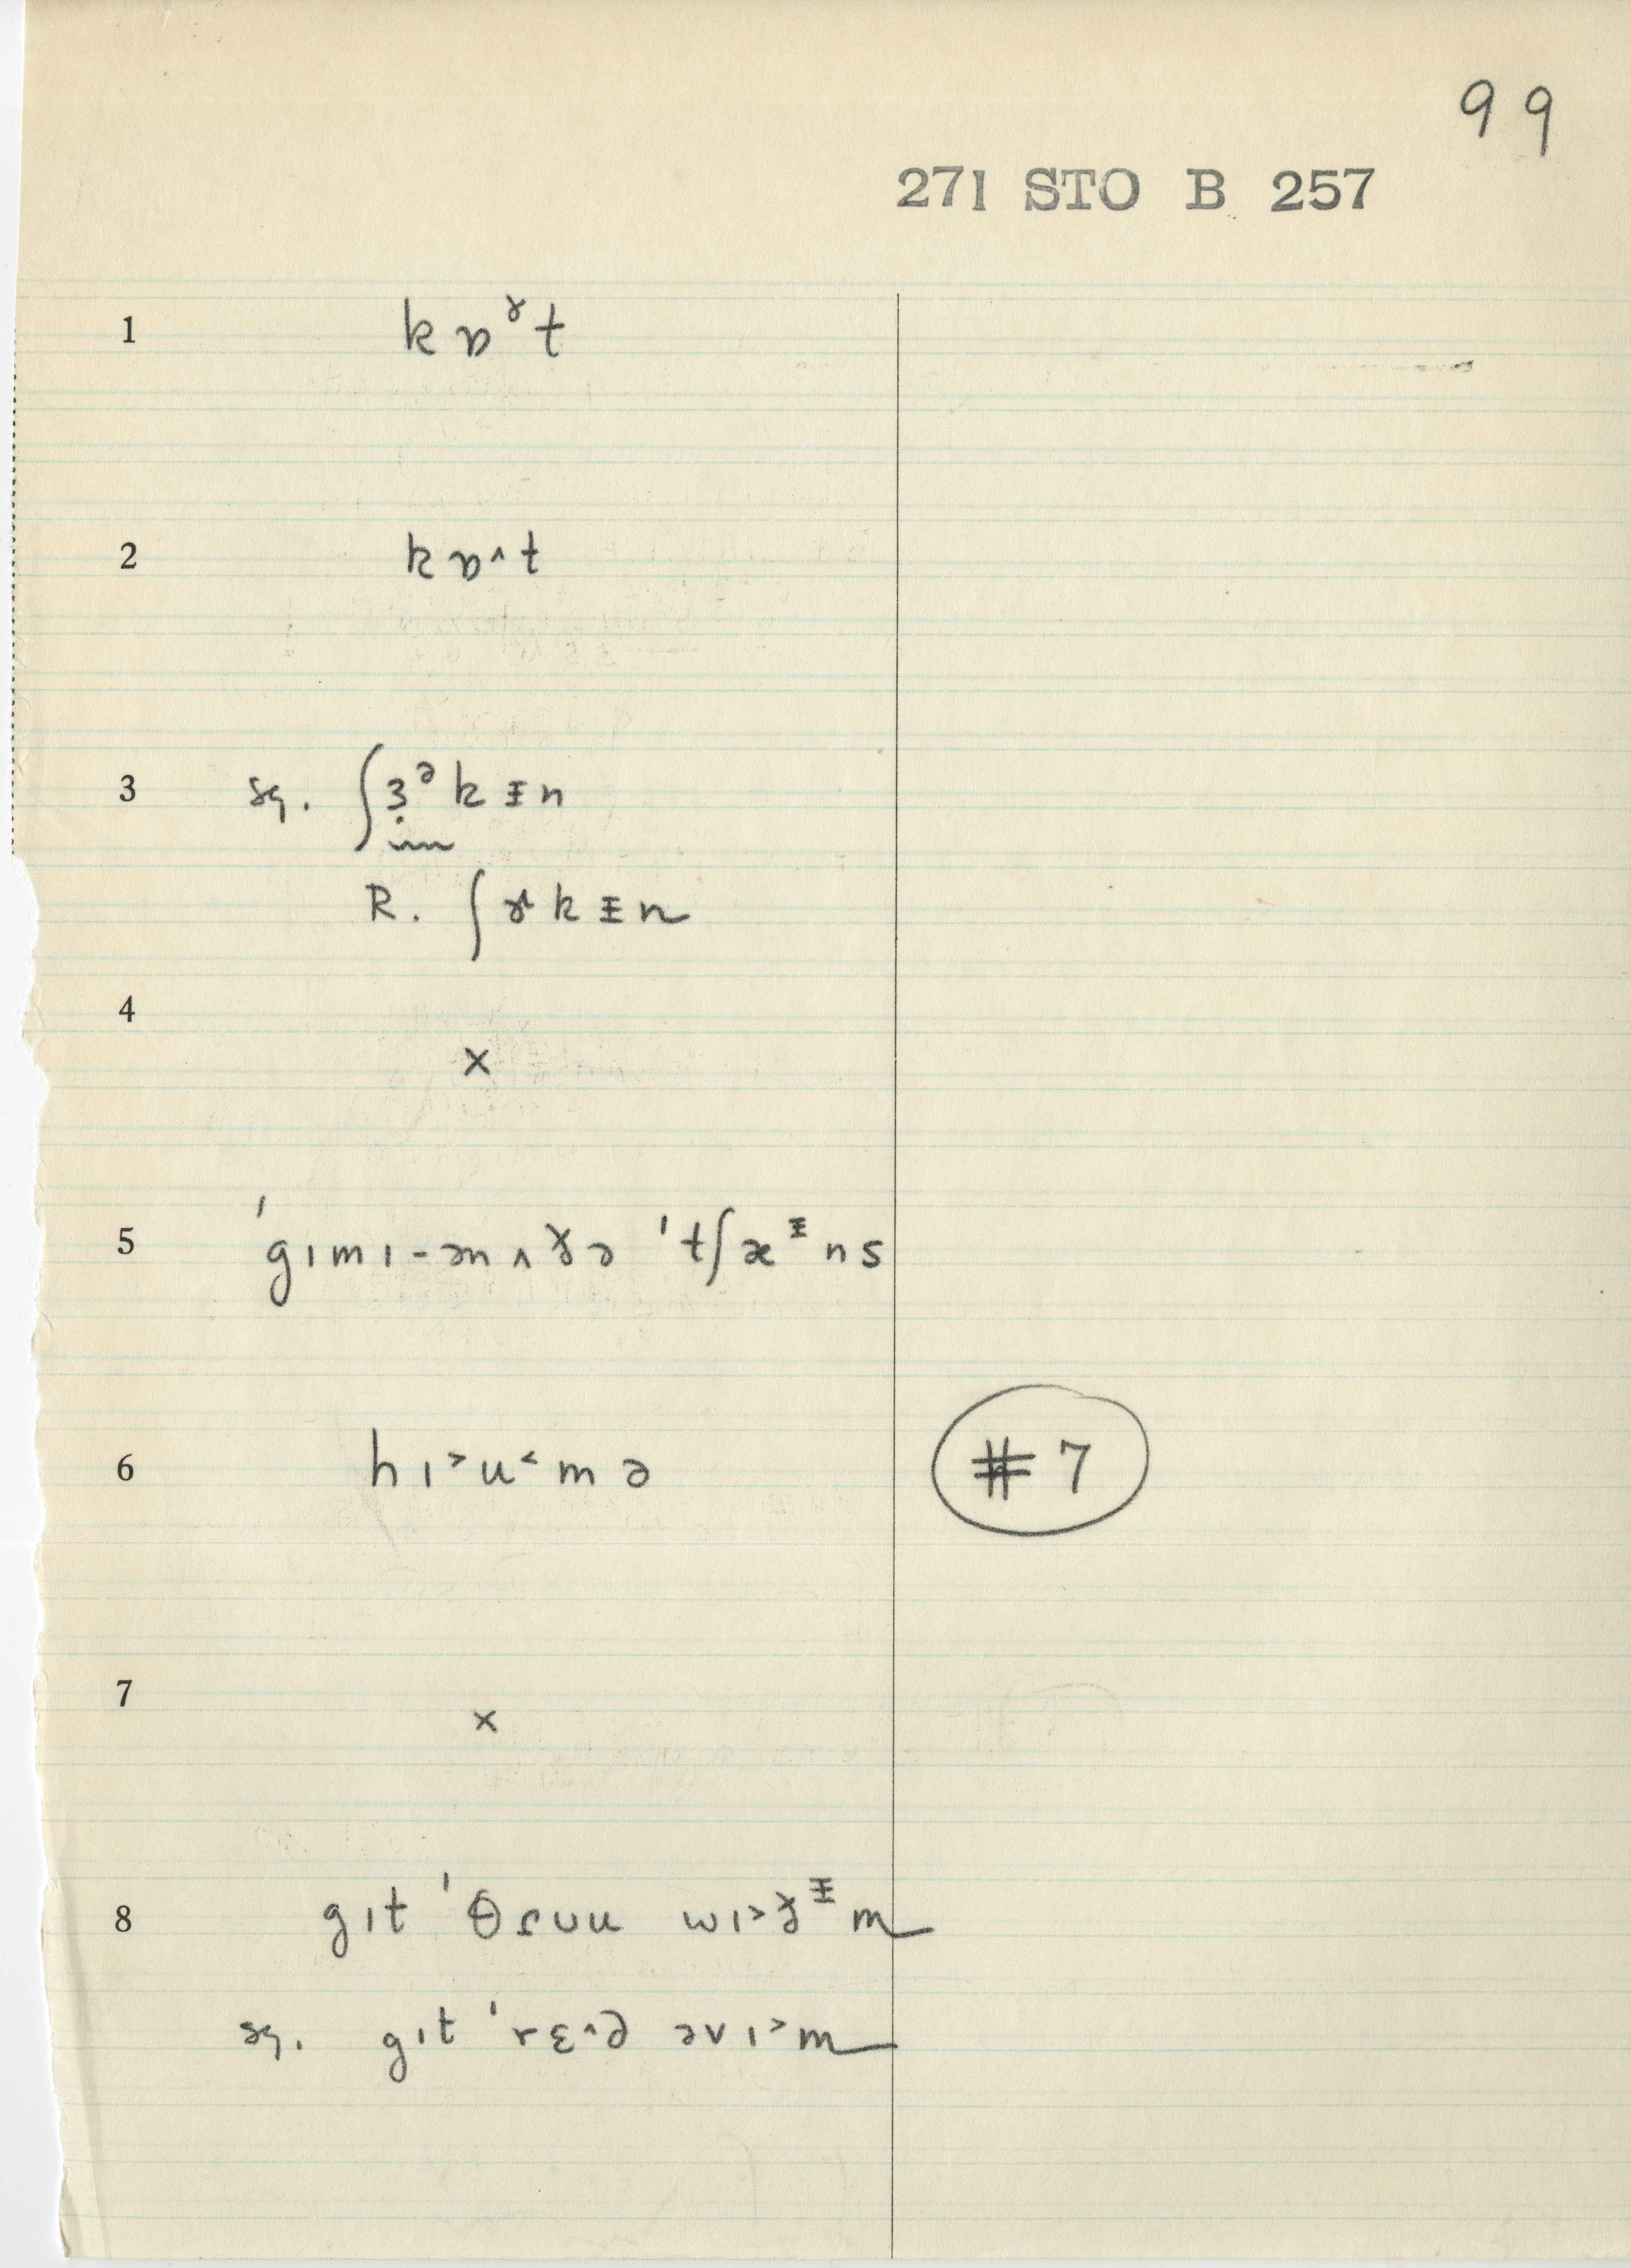 99
271 STO B 257
1 kɒɤt
2 kɒ^t
3 sq. ʃɜᵊkɪn
R. ʃɤkɪn
4 x
5 'gɪmɪ-ənʌɤə 'tʃæᶦns
6 hɪ>u<mə #7
7 x
8 gɪt 'θruu wɪ>ɤᶦm
sq. gɪt 'rɛ^d əvɪ>m